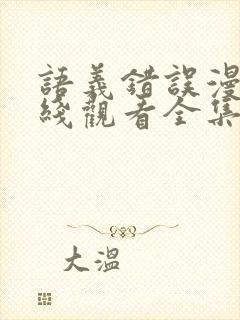 語義錯誤漫
綫觀看全集
大溫